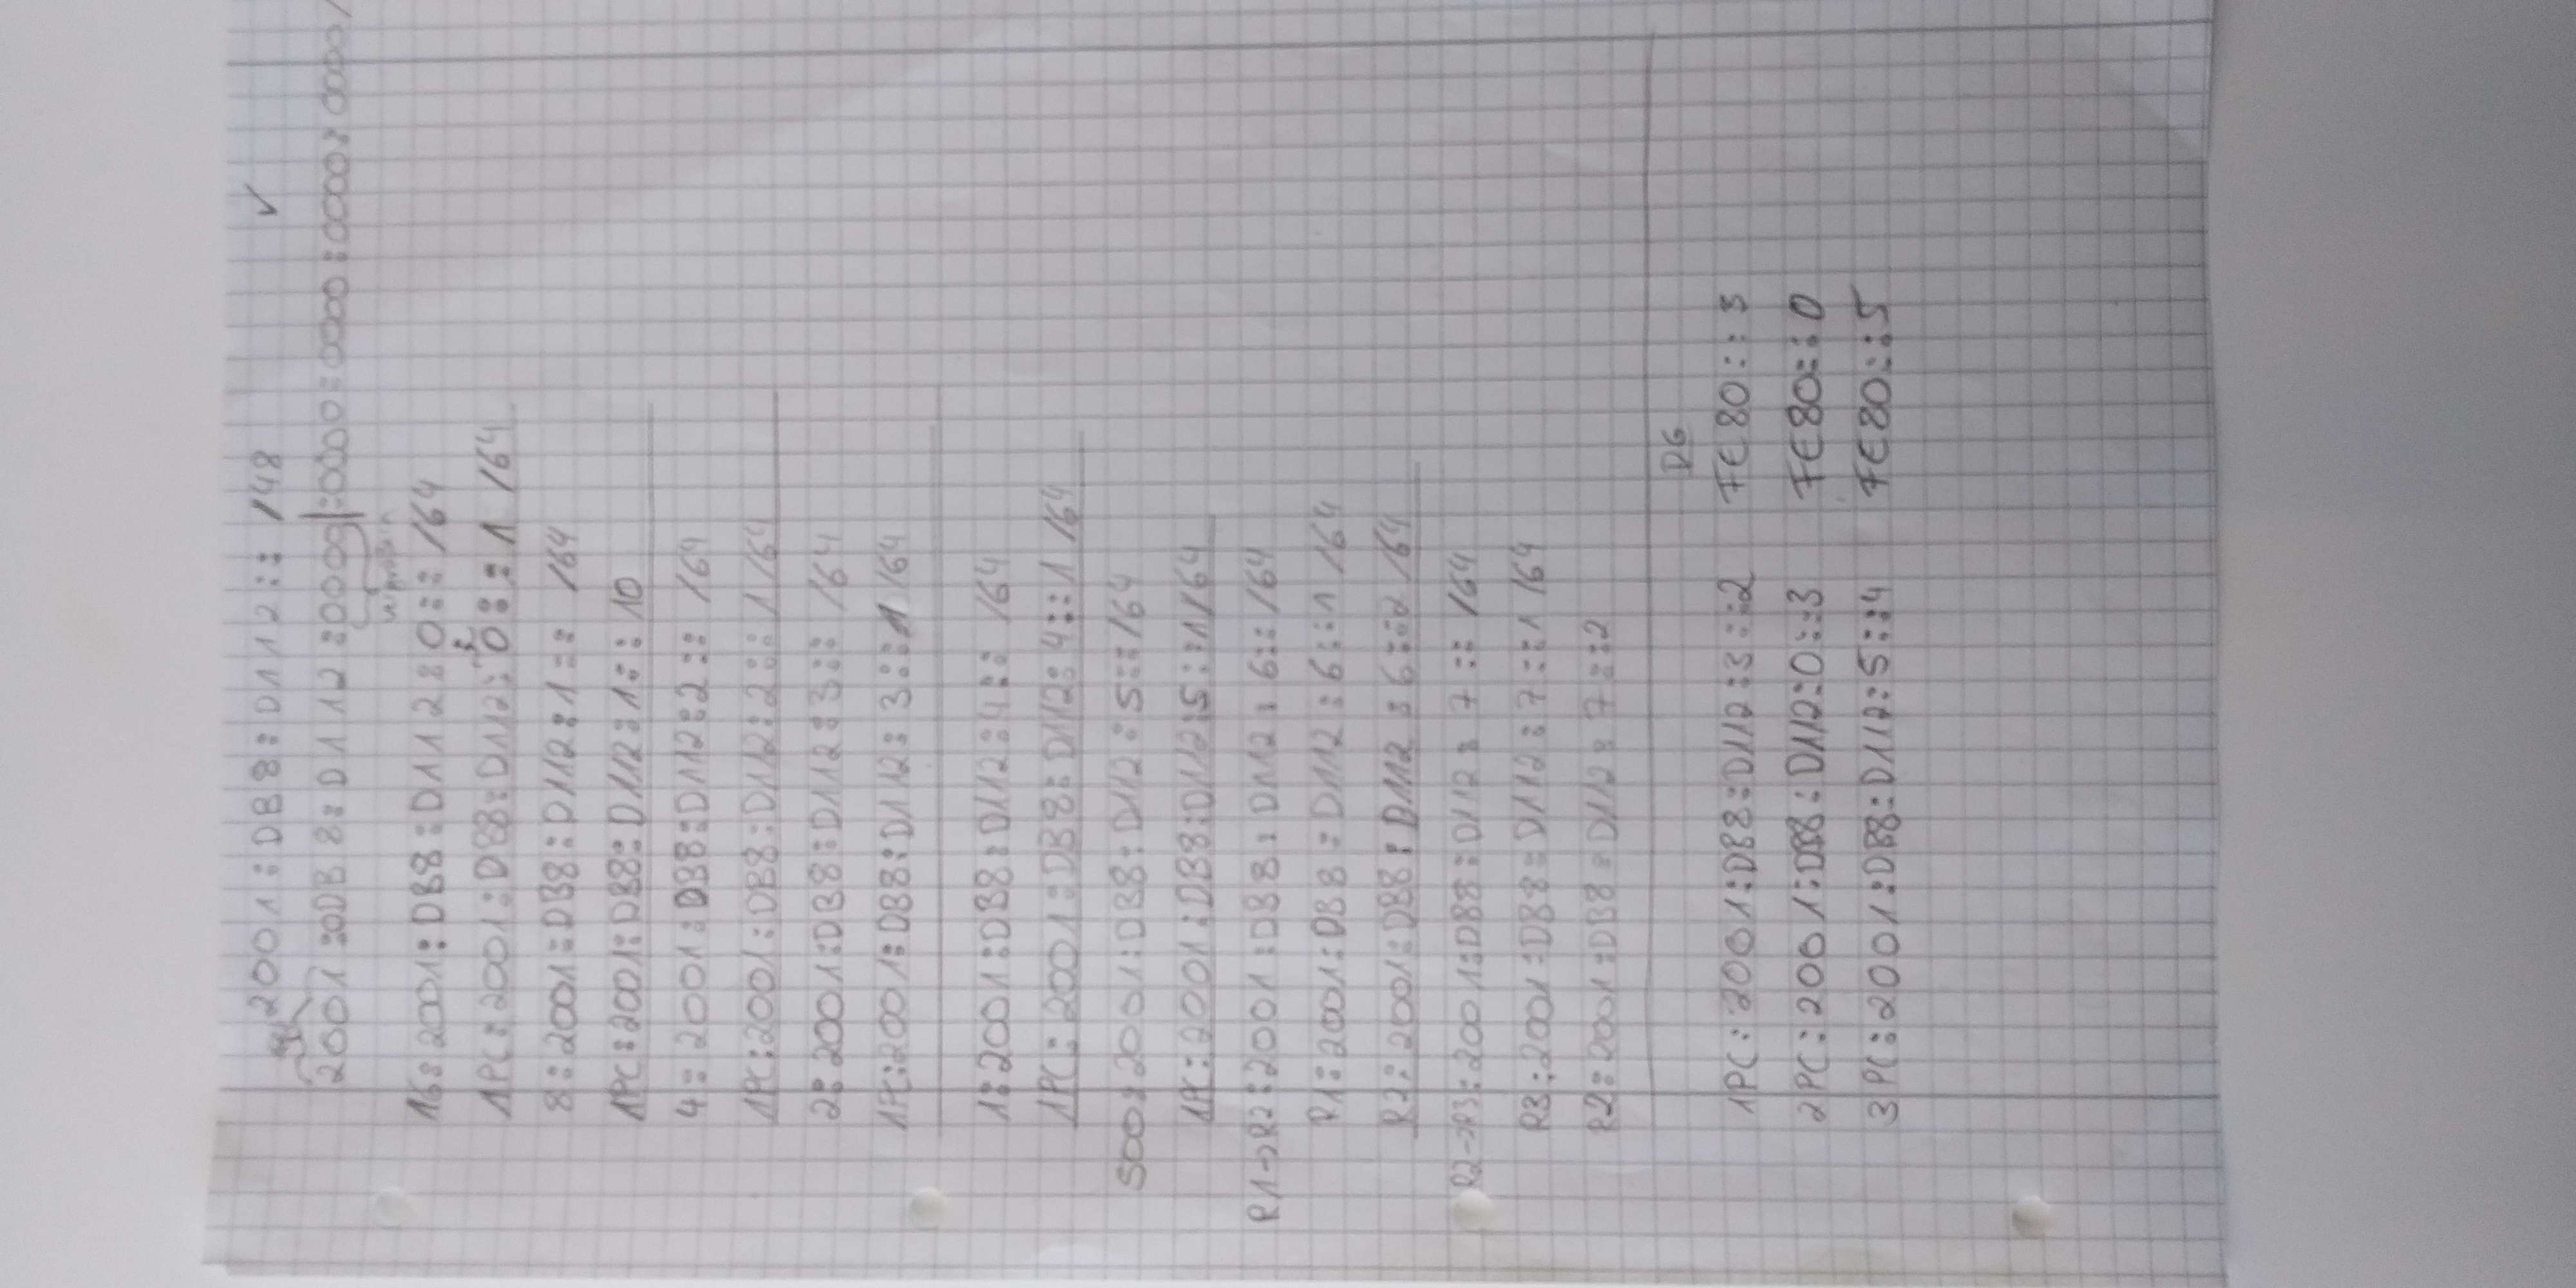 2001:DB8:D112:: /48 ✓
2001:0DB8:D112:0000|:0000:0000:0000:0000/
16: 2001:DB8:D112:0:: /64
1PC: 2001:DB8:D112:0::1 /64
8: 2001:DB8:D112:1:: /64
1PC: 2001:DB8:D112:1::10
4: 2001:DB8:D112:2:: /64
1PC: 2001:DB8:D112:2::1 /64
2: 2001:DB8:D112:3:: /64
1PC: 2001:DB8:D112:3::1 /64
1: 2001:DB8:D112:4:: /64
1PC: 2001:DB8:D112:4::1 /64
500: 2001:DB8:D112:5::/64
1PC: 2001:DB8:D112:5::1/64
R1->R2: 2001:DB8:D112:6::/64
R1: 2001:DB8:D112:6::1 /64
R2: 2001:DB8:D112:6::2 /64
R2->R3: 2001:DB8:D112:7:: /64
R3: 2001:DB8:D112:7::1 /64
R2: 2001:DB8:D112:7::2
DG
1PC: 2001:DB8:D112:3::2 FE80::3
2PC: 2001:DB8:D112:0::3 FE80::0
3PC: 2001:DB8:D112:5::4 FE80::5